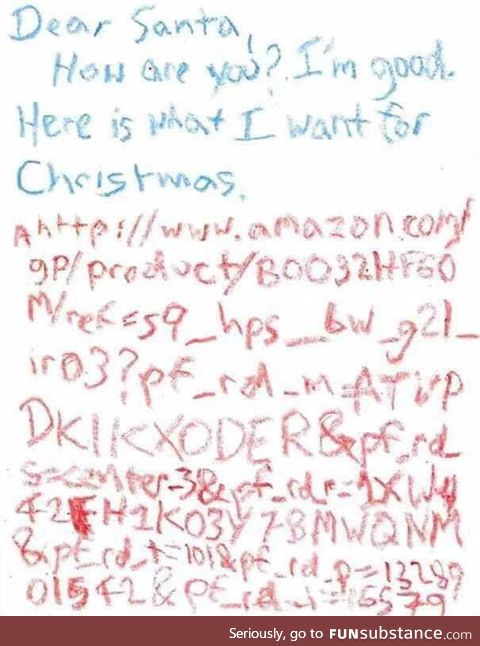 Dear Santa,
How are you? I'm good.
Here is what I want for
Christmas.
A http://www.amazon.com/
gp/product/B0032HF60
M/ref=s9_hps_bw_g21_
ir03?pf_rd_m=ATVP
DKIKX0DER&pf_rd_
s=center-3&pf_rd_r=1XW4
42FH1K03Y7BMWQNM
&pf_rd_t=101&pf_rd_p=13289
01542&pf_rd_i=16579
Seriously, go to FUNsubstance.com